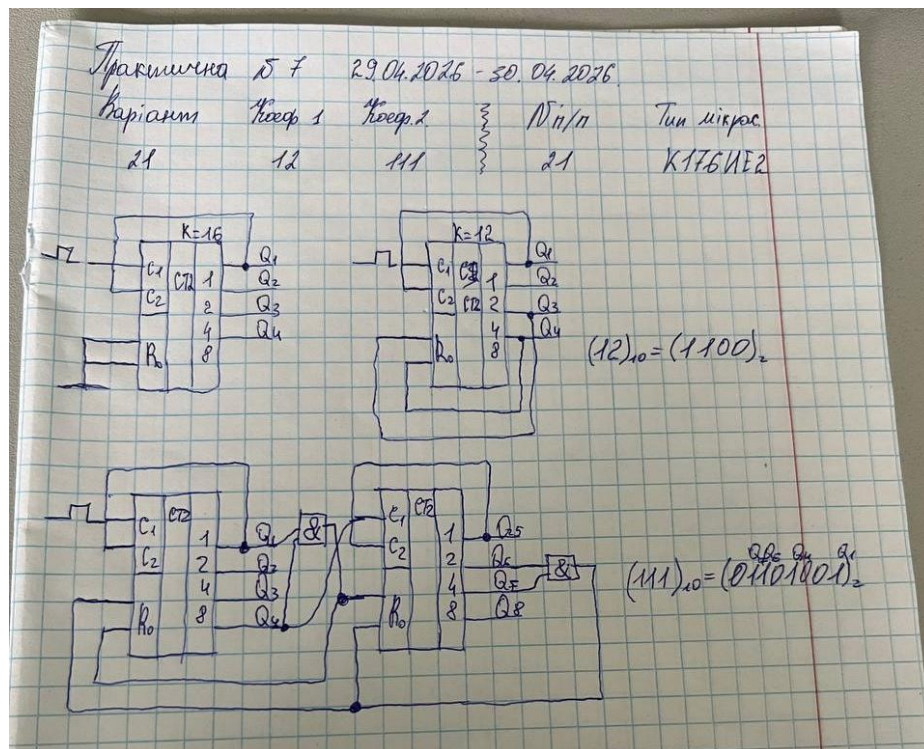 Практична № 7 29.04.2026 - 30.04.2026.
Варіант Коеф 1 Коеф.2 № п/п Тип мікрос.
21 12 111 21 К176ИЕ2
K=16
C1 CT2 1 Q1
C2 2 Q2
4 Q3
R0 8 Q4
K=12
C1 1 Q1
C2 CT2 2 Q2
4 Q3
R0 8 Q4
(12)10 = (1100)2
C1 CT2 1 Q1 &
C2 2 Q2
4 Q3
R0 8 Q4
C1 CT2 1 Q5
C2 2 Q6 &
4 Q7
R0 8 Q8
Q6 Q4 Q1
(111)10 = (01101001)2